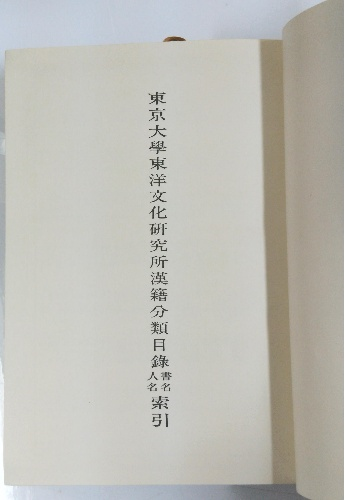 東京大學東洋文化硏究所漢籍分類目錄書名人名索引